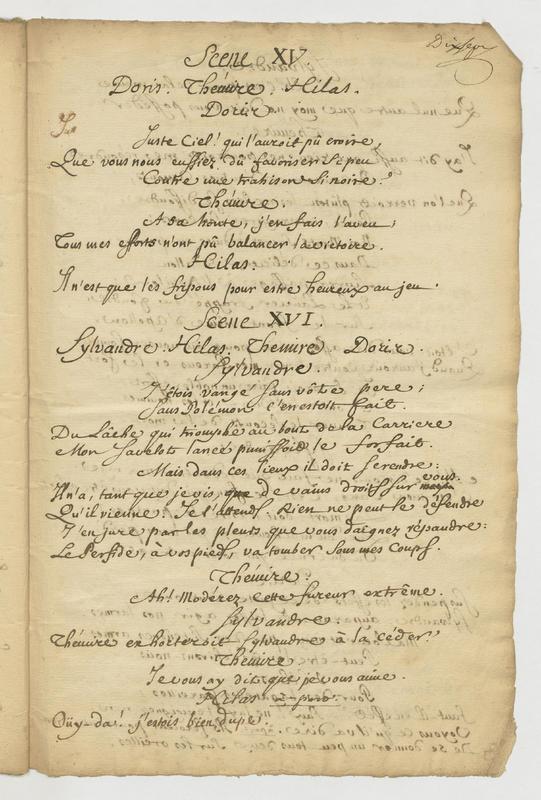 Dixsept
Scene XV
Doris. Thémire. Hilas.
Doris
Juste Ciel! qui l'auroit pû croire,
Que vous nous eussiez dû favoriser si peu
Contre une trahison si noire?
Thémire.
A sa honte, j'en fais l'aveu;
Tous mes efforts n'ont pû balancer la victoire.
Hilas.
Il n'est que les fripons pour estre heureux au jeu.
Scene XVI.
Sylvandre. Hilas. Themire Doris.
Sylvandre.
J'étois vangé sans vôtre pere;
Sans Polémon c'en estoit fait.
Du Lâche qui triomphe au bout de la Carriere
Mon Javelot lancé punissoit le forfait.
Mais dans ces lieux il doit se rendre:
Il n'a, tant que je vis, de vains droits sur vous.
Qu'il vienne: Je l'attends. Rien ne peut le défendre
J'en jure par les pleurs que vous daignez répandre:
Le Perfide, à vos pieds, va tomber sous mes Coups.
Thémire.
Ah! Modérez cette fureur extrême.
Sylvandre.
Thémire exhorteroit Sylvandre à la céder
Thémire
Je vous ay dit que je vous aime.
Hilas à part
Oüy-da! j'estois bien dupe.